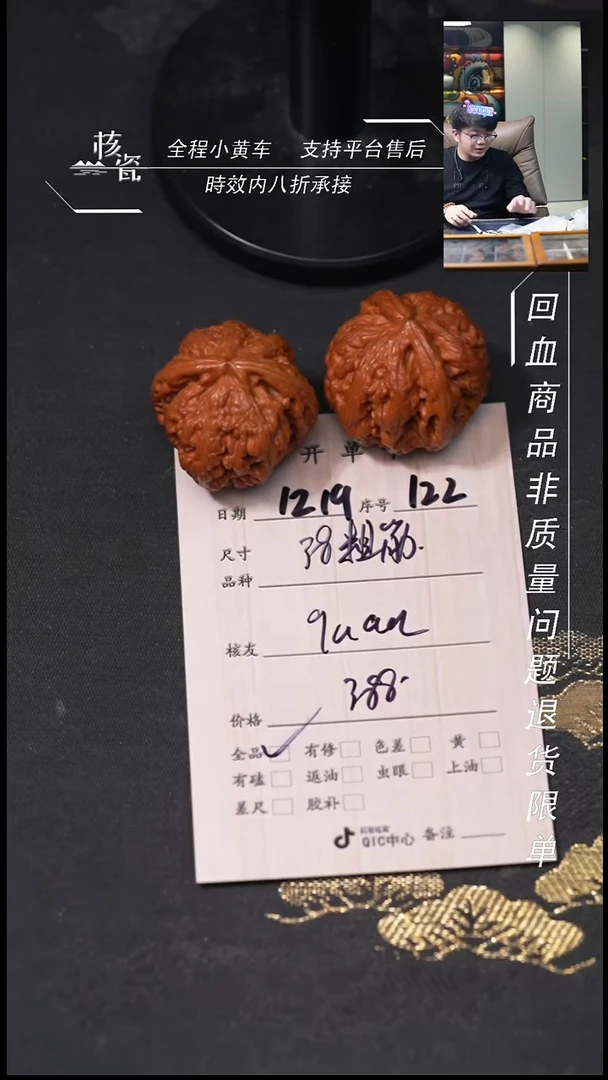 核瓷
全程小黄车 支持平台售后
時效内八折承接
回血商品非质量问题退货限单
开单
日期 1219 序号 122
尺寸
品种 38粗筋.
核友 quan
价格 388.
全品 有修 色差 黄
有磕 返油 虫眼 上油
差尺 胶补
QIC中心 备注